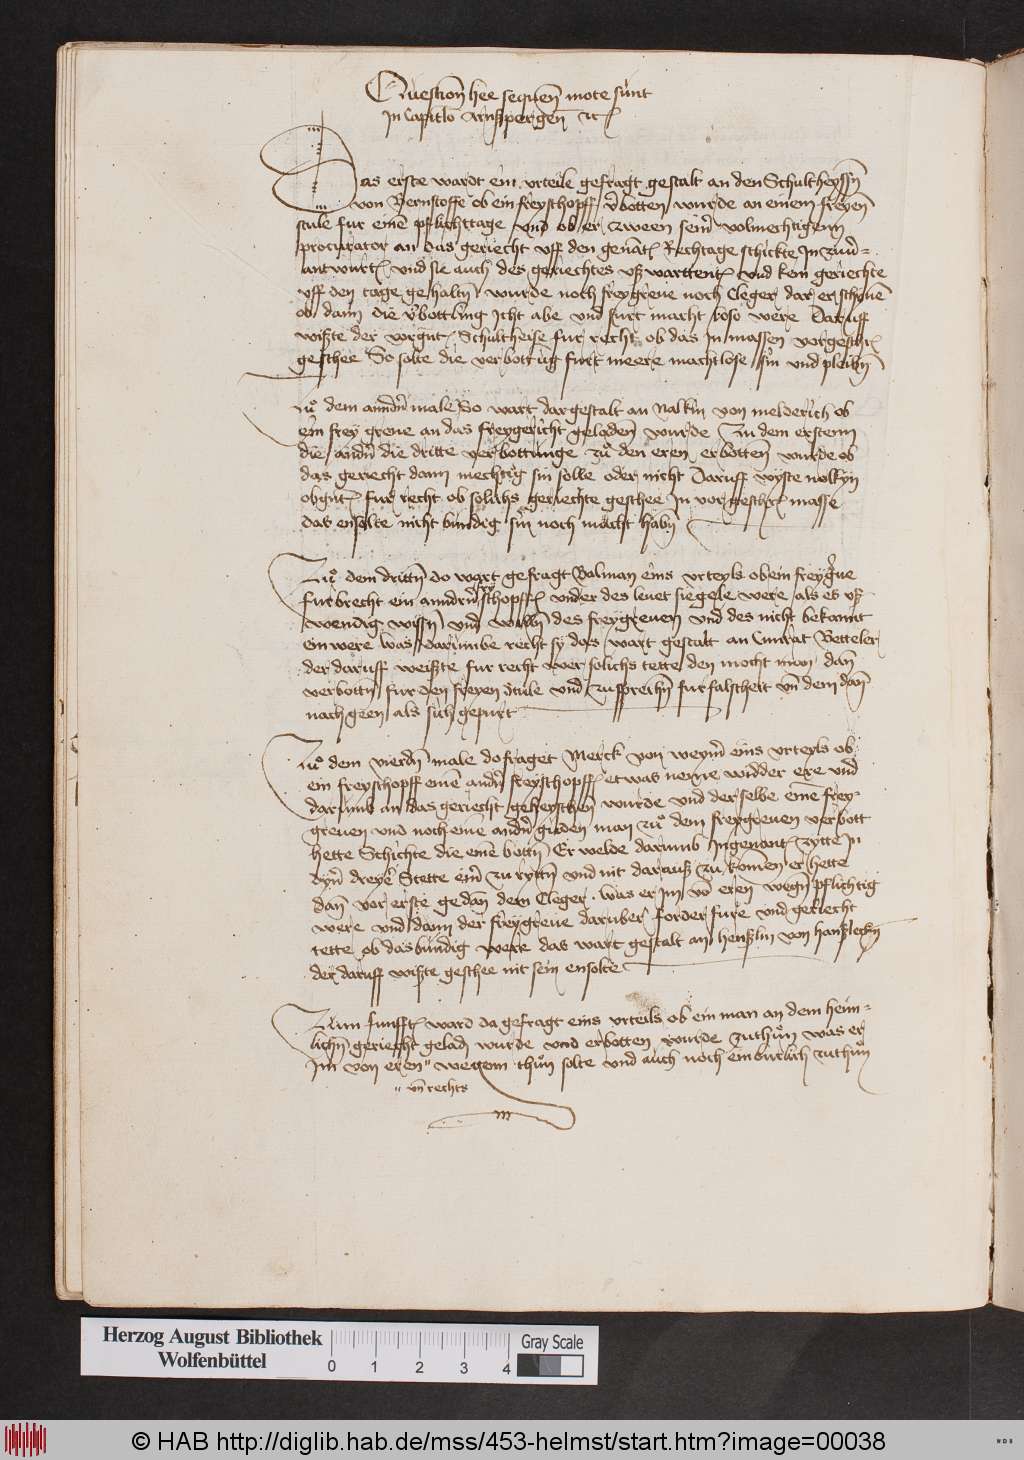 Question hee sequen mote sunt
In Capitlo Arnßpergen etc
Das erste wardt ein urteile gefragt gestalt an den Schultheyssn
von Bernstoffe ob ein freyschopff vbotten wurde an einem freyen
stule fur eine pflichttage und ob er zween seiner volmechtigenn
procurator an das geriecht uff den genant Rechtage schickte In zuuer=
antwurt und sie auch des geriechtes ußwarttent und kein geriechte
uff den tage gehaltn wurde noch freygreue noch Cleger dar erschine
ob dann die vbottung icht abe und furt macht loso were Daruff
wißte der vorgnt Schultheise fur recht ob das In massen vorgeschr
geschee So solte die verbotung furt meere machtlose sin und pleibn
Zu dem anndern male So wart dargestalt an Nalkin von melderich ob
ein frey greue an das freygericht geladen wurde Zu dem erstenn
die andn die dritte verbottunge zu den eren erbotten wurde ob
das geriecht dann mechtig sin solle oder nicht Daruff wyste nolkyn
obgnt fur recht ob solichs geriechte geschee In vorgeschr masse
das ensolte nicht bundig sin noch macht habn
Zu dem drittn do wart gefragt Volman eins urteyls ob ein freygreue
furbrecht ein anndern schopff under des leuet siegele were als es uß
wendig wissn und willn des freygreuen und des nicht bekannt
en were was darumbe recht sy das wart gestalt an Cunrat Betteler
der daruff weißte fur recht wer solichs tette den mocht man dan
verbottn fur den freyen Stule und zusprechn fur falscheit vn dem dan
nach geen als sich gepurt
Zu dem vierdn male do fraget Merck von weym eins urteyls ob
ein freyschopff eine andn freyschopff etwas neme widder ere und
darumb an das geriecht geheyschen wurde und der selbe eine frey=
greuen und noch eine andn guden man zu dem freygreuen verbott
hette Schichte die eine bottn Er welde darumb Ingenant zytte In
dyn dreyer Stette ein zu rytn und nit darauß zu komen er hette
dan vor erste gedan dem Cleger was er im vo eren wegn pflichtig
were und dann der freygreue daruber forder fure und geriecht
tette ob das bundig were das wart gestalt an henßlin von hanßleckn
der daruff wißte geschee nit sein ensolte
Zum funfft ward da gefragt eins urteils ob ein man an dem heim=
lichn geriecht geladn wurde und erbotten wurde zuthun was er
im von eren " wegenn thun solte und auch noch einbutlich zuthun
" vn rechts
Herzog August Bibliothek
Wolfenbüttel
0 1 2 3 4
Gray Scale
© HAB http://diglib.hab.de/mss/453-helmst/start.htm?image=00038